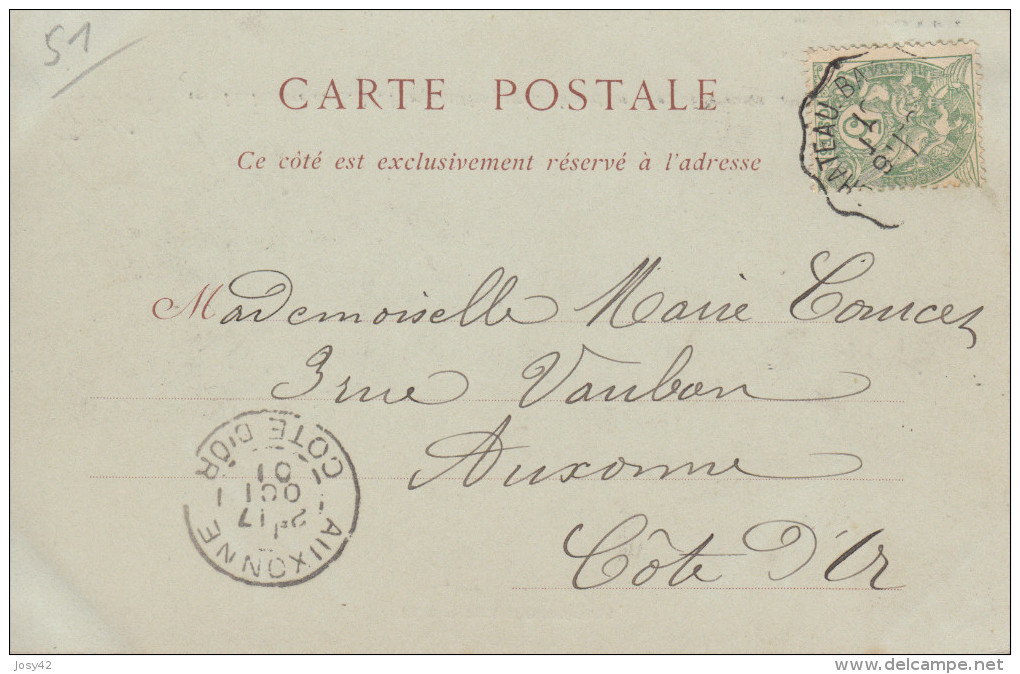 51
CARTE POSTALE
Ce côté est exclusivement réservé à l'adresse
HATEAU
Mademoiselle Marie
3 rue Vauban
Auxonne
Côte D'Or
AUXONNE
CÔTE D'OR
17
OCT
01
Josy42
www.delcampe.net